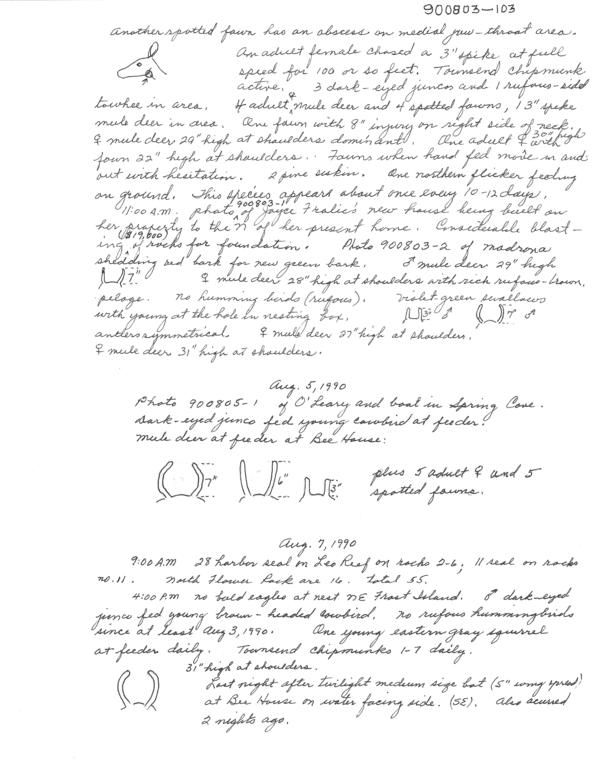 900803-103
Another spotted fawn has an abscess on medial jaw-throat area.
An adult female chased a 3" spike at full
speed for 100 or so feet. Townsend chipmunk
active. 3 dark-eyed juncos and 1 rufous-sided
towhee in area. 4 adult ♀ mule deer and 4 spotted fawns, 1 3" spike
mule deer in area. One fawn with 8" injury on right side of neck.
♀ mule deer 29" high at shoulders dominant. One adult ♀ 30" high with
fawn 22" high at shoulders. Fawns when hand fed move in and
out with hesitation. 2 pine siskin. One northern flicker feeding
on ground. This species appears about once every 10-12 days.
11:00 A.M. photo 900803-1 of Joyce Fralic's new house being built on
her property to the N of her present home. Considerable blast-
ing ($19,000) of rocks for foundation. Photo 900803-2 of madrona
shedding red bark for new green bark. ♂ mule deer 29" high
7" ♀ mule deer 28" high at shoulders with rich rufous-brown
pelage. No humming birds (rufous). Violet green swallows
with young at the hole in nesting box. 3" ♂ 7" ♂
antlers symmetrical ♀ mule deer 27" high at shoulders.
♀ mule deer 31" high at shoulders.
Aug. 5, 1990
Photo 900805-1 of O'Leary and boat in Spring Cove.
Dark-eyed junco fed young cowbird at feeder.
Mule deer at feeder at Bee House:
7" 6" 3" plus 5 adult ♀ and 5
spotted fawns.
Aug. 7, 1990
9:00 A.M 28 harbor seal on Leo Reef on rocks 2-6; 11 seal on rocks
no. 11. North Flower Rock are 16. Total 55.
4:00 P.M no bald eagles at nest NE Frost Island. ♂ dark-eyed
junco fed young brown-headed cowbird. No rufous hummingbirds
since at least Aug 3, 1990. One young eastern gray squirrel
at feeder daily. Townsend chipmunks 1-7 daily.
31" high at shoulders.
Last night after twilight medium size bat (5" wing spread)
at Bee House on water facing side. (SE). Also occured
2 nights ago.